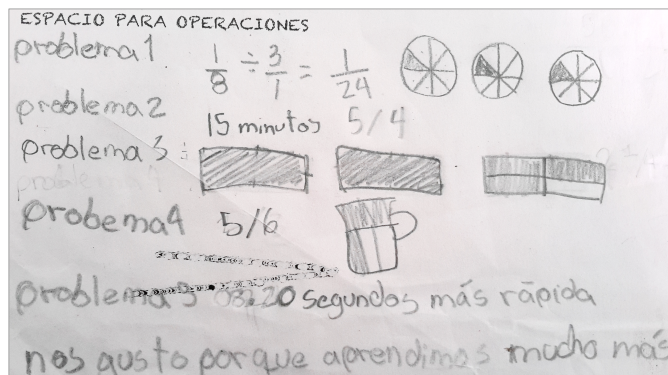 ESPACIO PARA OPERACIONES
problema 1
1/8 ÷ 3/1 = 1/24
problema 2
15 minutos 5/4
problema 3
probema 4 5/6
problema 20 segundos más rápida
nos gusto porque aprendimos mucho más